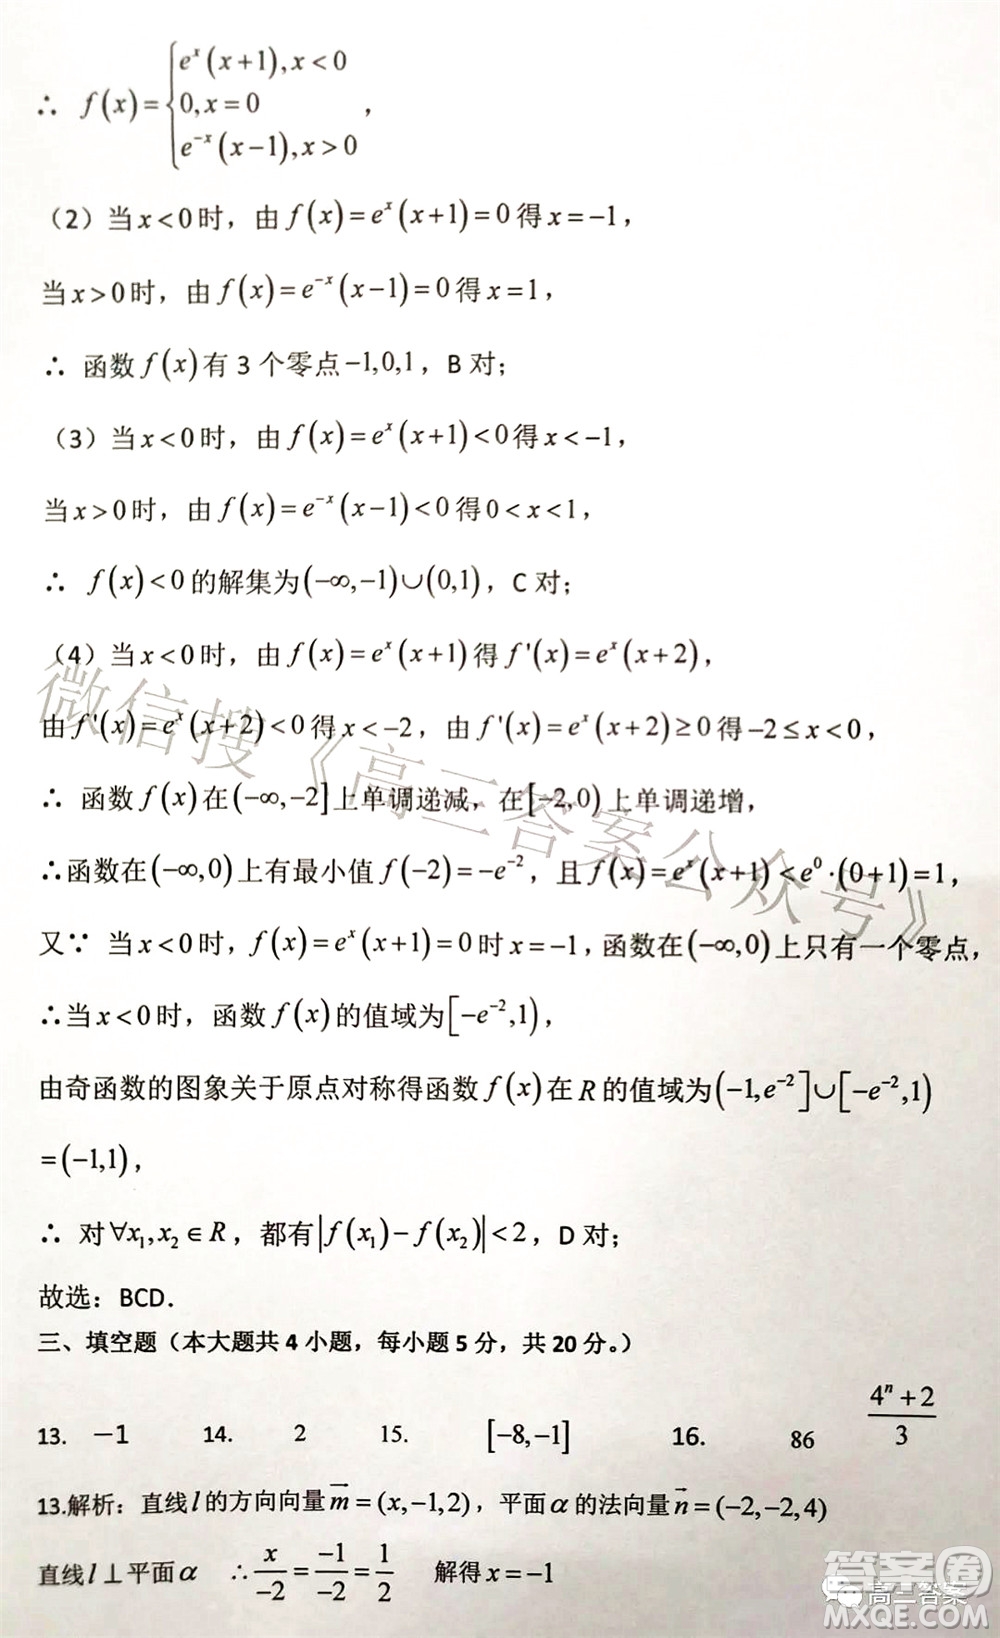 ∴ f(x)={e^x(x+1),x<0
0,x=0
e^{-x}(x-1),x>0 ,
（2）当x<0时，由f(x)=e^x(x+1)=0得x=-1，
当x>0时，由f(x)=e^{-x}(x-1)=0得x=1，
∴ 函数f(x)有3个零点-1,0,1，B对；
（3）当x<0时，由f(x)=e^x(x+1)<0得x<-1，
当x>0时，由f(x)=e^{-x}(x-1)<0得0<x<1，
∴ f(x)<0的解集为(-∞,-1)∪(0,1)，C对；
（4）当x<0时，由f(x)=e^x(x+1)得f'(x)=e^x(x+2)，
由f'(x)=e^x(x+2)<0得x<-2，由f'(x)=e^x(x+2)≥0得-2≤x<0，
∴ 函数f(x)在(-∞,-2]上单调递减，在[-2,0)上单调递增，
∴函数在(-∞,0)上有最小值f(-2)=-e^{-2}，且f(x)=e^x(x+1)<e^0·(0+1)=1，
又∵ 当x<0时，f(x)=e^x(x+1)=0时x=-1，函数在(-∞,0)上只有一个零点，
∴当x<0时，函数f(x)的值域为[-e^{-2},1)，
由奇函数的图象关于原点对称得函数f(x)在R的值域为(-1,e^{-2}]∪[-e^{-2},1)
=(-1,1)，
∴ 对∀x₁,x₂∈R，都有|f(x₁)-f(x₂)|<2，D对；
故选：BCD.
三、填空题（本大题共4小题，每小题5分，共20分。）
13. -1 14. 2 15. [-8,-1] 16. 86 (4^n+2)/3
13.解析：直线l的方向向量m⃗=(x,-1,2)，平面α的法向量n⃗=(-2,-2,4)
直线l⊥平面α ∴x/-2=-1/-2=1/2 解得x=-1
微信搜《高三答案公众号》
高三答案
答案圈
MXQE.COM